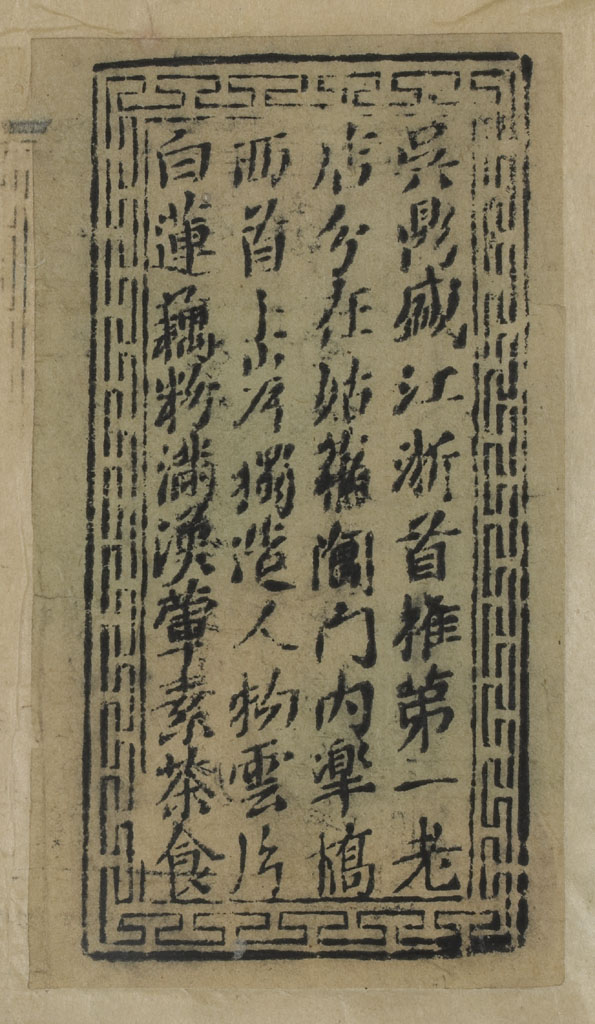 吳鼎盛江浙首推第一老
店分在姑蘇閶門內皋橋
西首上岸獨造人物雲片
白蓮藕粉滿漢葷素茶食